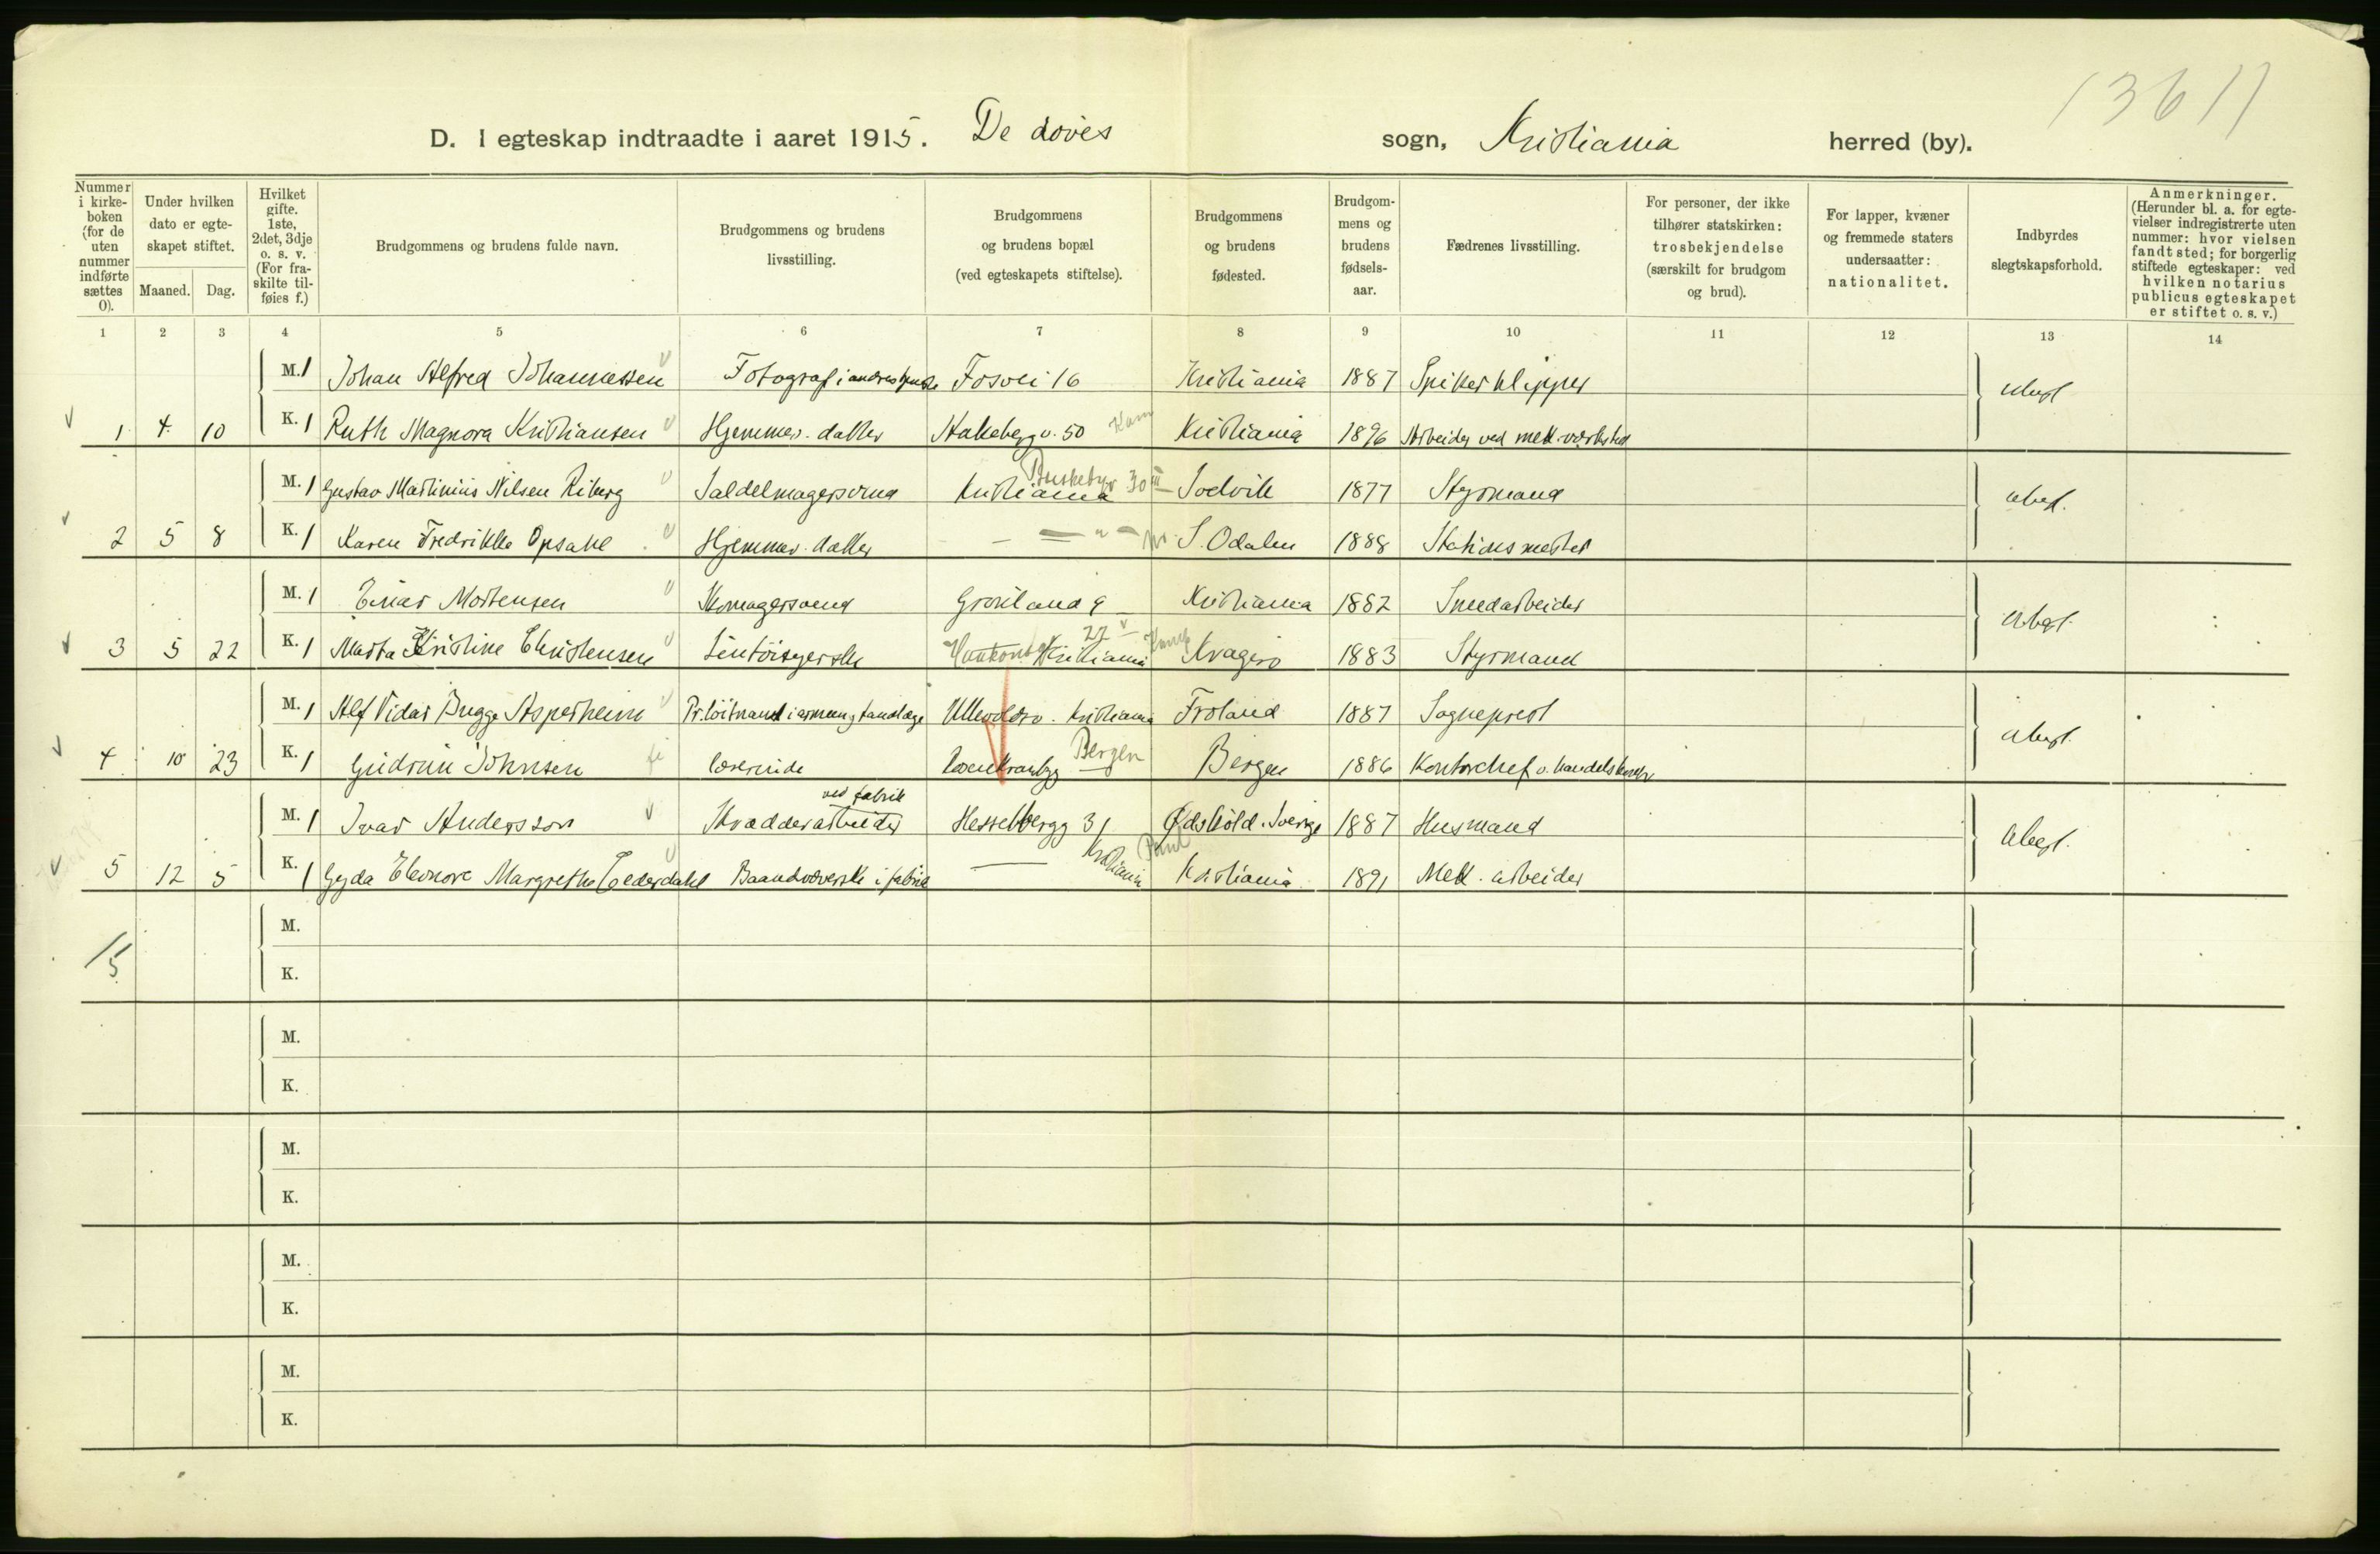 1361)
D. I egteskap indtraadte i aaret 1915. De døves sogn, Kristiania herred (by).
Nummer i kirkeboken (for de uten nummer indførte sættes 0).
Under hvilken dato er egteskapet stiftet.
Maaned. Dag.
Hvilket gifte. 1ste, 2det, 3dje o. s. v. (For fraskilte tilføies f.)
Brudgommens og brudens fulde navn.
Brudgommens og brudens livsstilling.
Brudgommens og brudens bopæl (ved egteskapets stiftelse).
Brudgommens og brudens fødested.
Brudgommens og brudens fødselsaar.
Fædrenes livsstilling.
For personer, der ikke tilhører statskirken: trosbekjendelse (særskilt for brudgom og brud).
For lapper, kvæner og fremmede staters undersaatter: nationalitet.
Indbyrdes slegtskapsforhold.
Anmerkninger. (Herunder bl. a. for egtevielser indregistrerte uten nummer: hvor vielsen fandt sted; for borgerlig stiftede egteskaper: ved hvilken notarius publicus egteskapet er stiftet o. s. v.)
1 2 3 4 5 6 7 8 9 10 11 12 13 14
M. 1 Johan Alfred Johannessen Fotograf i andres tjeneste Fosvei 16 Kristiania 1887 Spikerklipper ubesl.
1 4 10 K. 1 Ruth Magnora Kristiansen Hjemmev. datter Hakebergv. 50 Kam Kristiania 1896 Arbeider ved mek. værksted
M. 1 Gustav Martinius Nilsen Riberg Saldelmagersvend Kristiania 30 III Svelvik 1877 Styrmand ubesl.
2 5 8 K. 1 Karen Fredrikke Opsahl Hjemmev. datter — " — S. Odalen 1888 Stationsmester
M. 1 Einar Mortensen Skomagersvend Grønland 9 Kristiania 1882 Smedarbeider ubesl.
3 5 22 K. 1 Marta Kristine Christensen Lintøisyerske 22 V Kristiania Kragerø 1883 Styrmand
M. 1 Alf Vidar Bugge Asperheim Pr.løitnant i armeen, tandlæge Ullevoldsv. Kristiania Froland 1887 Sogneprest ubesl.
4 10 23 K. 1 Gudrun Johnsen lærerinde Rosenkrantzg Bergen Bergen 1886 Kontorchef o. handelsborger
M. 1 Ivar Andersson Skrædderarbeider ved fabrik Hesselbergg 31 Ødskøld. Sverige 1887 Husmand ubesl.
5 12 5 K. 1 Gyda Eleonore Margrethe Cederdahl Baandvæverske i fabrik — Kristiania Kristiania 1891 Mek. arbeider
M.
5
K.
M.
K.
M.
K.
M.
K.
M.
K.